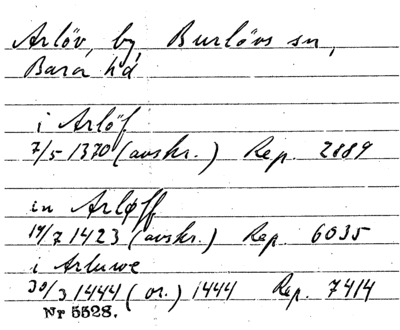 Arlöv, by, Burlövs sn,
Bara hd
i Arlöf
7/5 1370 (avskr.) Rep. 2889
in Arløff
19/7 1423 (avskr.) Rep. 6035
i Arluwe
30/3 1444 (or.) 1444 Rep. 7414
Nr 5528.